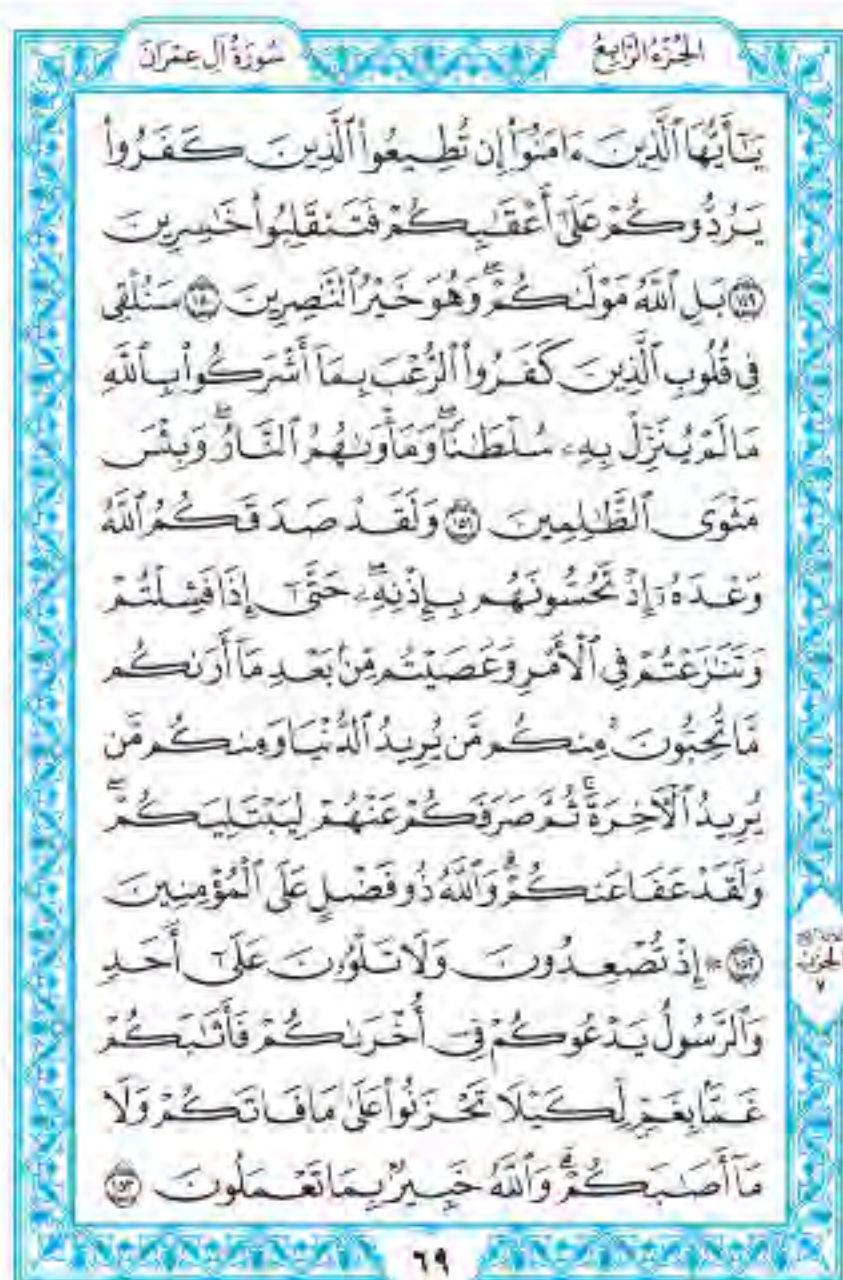 الجُزْءُ الرَّابِعُ
سُورَةُ آلِ عِمْرَانَ
يَٰٓأَيُّهَا ٱلَّذِينَ ءَامَنُوٓا۟ إِن تُطِيعُوا۟ ٱلَّذِينَ كَفَرُوا۟
يَرُدُّوكُمْ عَلَىٰٓ أَعْقَٰبِكُمْ فَتَنقَلِبُوا۟ خَٰسِرِينَ
١٤٩ بَلِ ٱللَّهُ مَوْلَىٰكُمْ ۖ وَهُوَ خَيْرُ ٱلنَّٰصِرِينَ ١٥٠ سَنُلْقِى
فِى قُلُوبِ ٱلَّذِينَ كَفَرُوا۟ ٱلرُّعْبَ بِمَآ أَشْرَكُوا۟ بِٱللَّهِ
مَا لَمْ يُنَزِّلْ بِهِۦ سُلْطَٰنًا ۖ وَمَأْوَىٰهُمُ ٱلنَّارُ ۖ وَبِئْسَ
مَثْوَى ٱلظَّٰلِمِينَ ١٥١ وَلَقَدْ صَدَقَكُمُ ٱللَّهُ
وَعْدَهُۥٓ إِذْ تَحُسُّونَهُم بِإِذْنِهِۦ ۖ حَتَّىٰٓ إِذَا فَشِلْتُمْ
وَتَنَٰزَعْتُمْ فِى ٱلْأَمْرِ وَعَصَيْتُم مِّنۢ بَعْدِ مَآ أَرَىٰكُم
مَّا تُحِبُّونَ ۚ مِنكُم مَّن يُرِيدُ ٱلدُّنْيَا وَمِنكُم مَّن
يُرِيدُ ٱلْـَٔاخِرَةَ ۚ ثُمَّ صَرَفَكُمْ عَنْهُمْ لِيَبْتَلِيَكُمْ ۖ
وَلَقَدْ عَفَا عَنكُمْ ۗ وَٱللَّهُ ذُو فَضْلٍ عَلَى ٱلْمُؤْمِنِينَ
١٥٢ ۞ إِذْ تُصْعِدُونَ وَلَا تَلْوُۥنَ عَلَىٰٓ أَحَدٍ
وَٱلرَّسُولُ يَدْعُوكُمْ فِىٓ أُخْرَىٰكُمْ فَأَثَٰبَكُمْ
غَمًّۢا بِغَمٍّ لِّكَيْلَا تَحْزَنُوا۟ عَلَىٰ مَا فَاتَكُمْ وَلَا
مَآ أَصَٰبَكُمْ ۗ وَٱللَّهُ خَبِيرٌۢ بِمَا تَعْمَلُونَ ١٥٣
الحِزْب
٧
٦٩